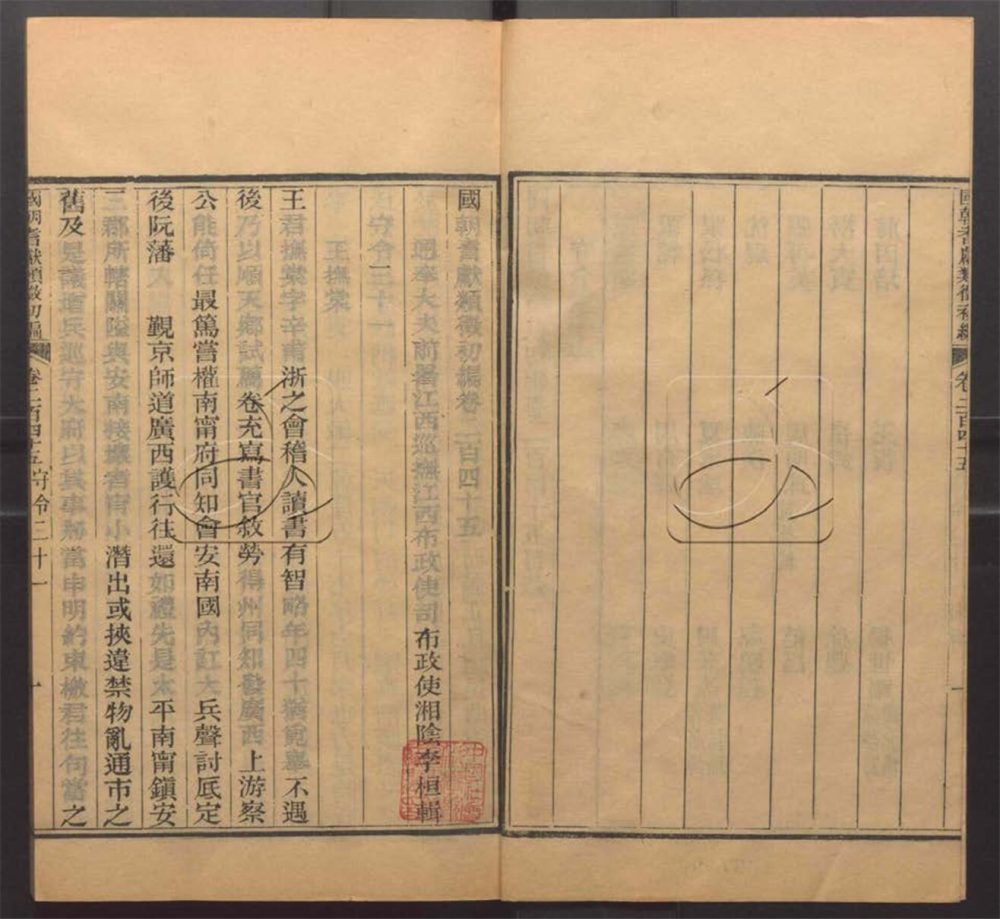 國朝耆獻類徵初編卷二百四十五
通奉大夫前署江西巡撫江西布政使司布政使湘陰李桓輯
守令三十一
王撫棠
王君撫棠字辛甫浙之會稽人讀書有智略年四十猶兔舉不遇
後乃以順天鄉試謄卷充寫書官敘勞得州同知發廣西上游察
公能倚任最篤嘗權南甯府同知會安南國內訌大兵聲討厎定
後阮藩入覲京師道廣西護行往還如禮先是太平南甯鎮安
三郡所轄關隘與安南接壤者宵小潛出或挾違禁物亂通市之
舊及是議增兵巡守大府以其事郝當申明約束檄君往句當之
國朝耆獻類徵初編 卷二百四十五 守令三十一 一
國朝耆獻類徵初編 卷二百四十五 一